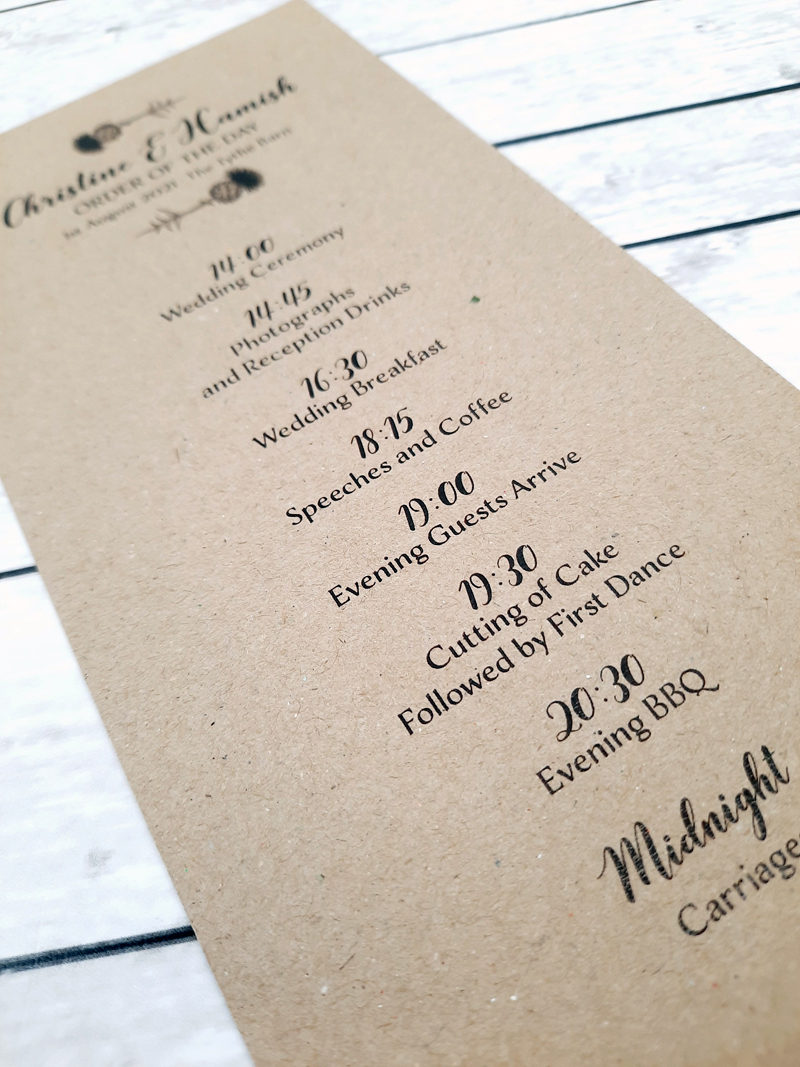 Christine & Hamish
ORDER OF THE DAY
1st August 2021 The Tythe Barn
14:00
Wedding Ceremony
14:45
Photographs
and Reception Drinks
16:30
Wedding Breakfast
18:15
Speeches and Coffee
19:00
Evening Guests Arrive
19:30
Cutting of Cake
Followed by First Dance
20:30
Evening BBQ
Midnight
Carriage